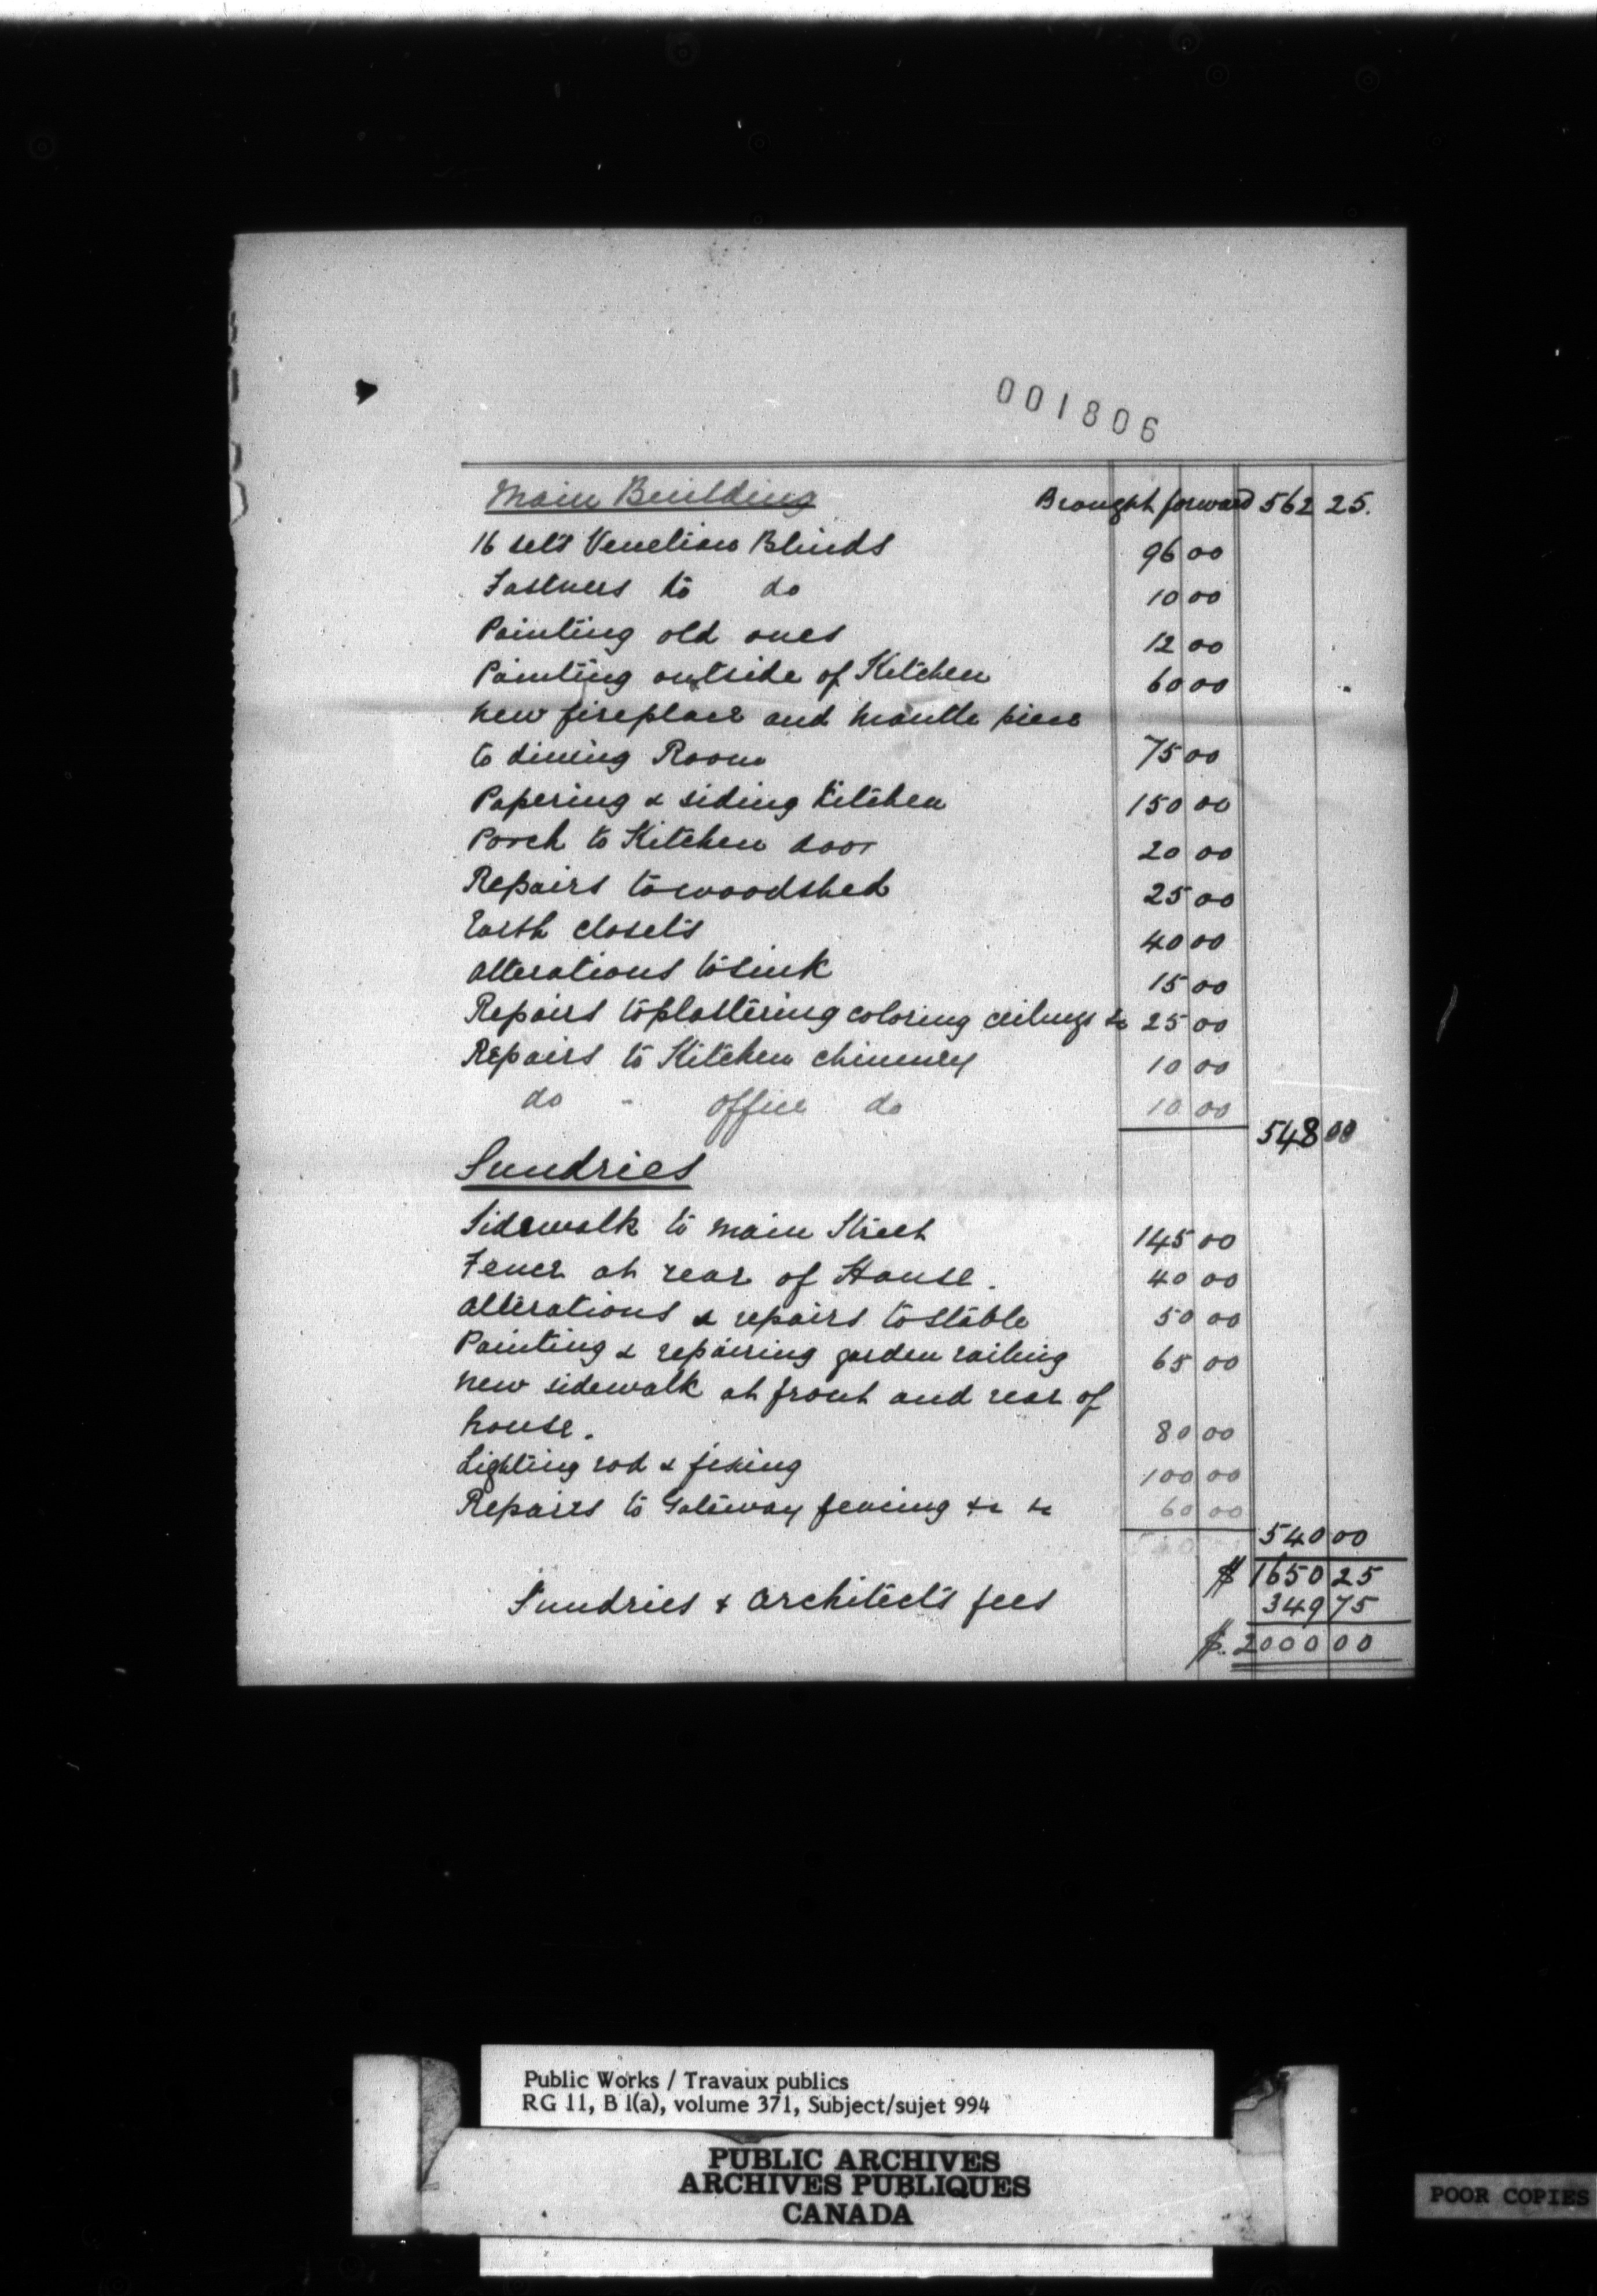 001806
Main Building Brought forward 562 25.
16 sets Venetian Blinds 96 00
Fastners to do 10 00
Painting old ones 12 00
Painting outside of Kitchen 60 00
New fireplace and mantle piece
to dining Room 75 00
Papering & siding Kitchen 150 00
Porch to Kitchen door 20 00
Repairs to woodshed 25 00
Earth closets 40 00
Alterations to sink 15 00
Repairs to plastering coloring ceilings &c 25 00
Repairs to Kitchen chimney 10 00
do " office do 10 00
548 00
Sundries
Sidewalk to Main Street 145 00
Fence at rear of House. 40 00
Alterations & repairs to Stable 50 00
Painting & repairing garden railing 65 00
New sidewalk at front and rear of
house. 80 00
Lighting rod & fixing 100 00
Repairs to Gateway fencing &c &c 60 00
540 00
$ 1650 25
Sundries & Architects fees 349 75
$. 2000 00
Public Works / Travaux publics
RG 11, B 1(a), volume 371, Subject/sujet 994
PUBLIC ARCHIVES
ARCHIVES PUBLIQUES
CANADA
POOR COPIES